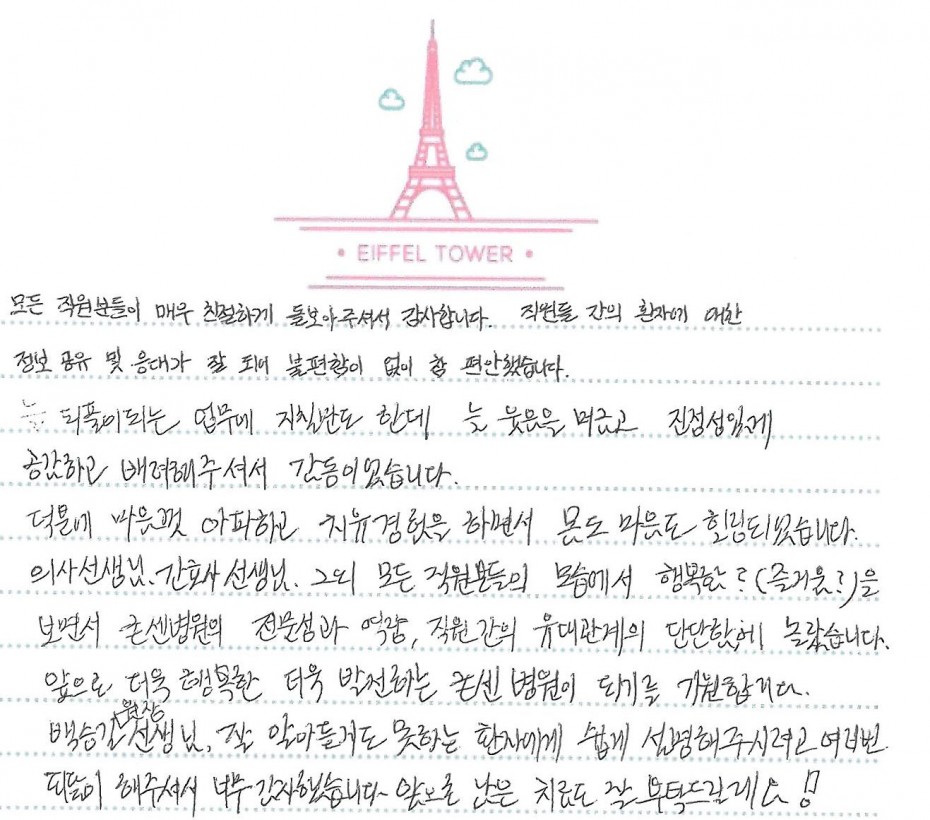 • EIFFEL TOWER •
모든 직원분들이 매우 친절하게 돌보아주셔서 감사합니다. 직원들 간의 환자에 대한
정보 공유 및 응대가 잘 되어 불편함이 없이 참 편안했습니다.
늘 되풀이되는 업무에 지칠만도 한데 늘 웃음을 머금고 진정성있게
공감하고 배려해주셔서 감동이었습니다.
덕분에 마음껏 아파하고 치유경험을 하면서 몸도 마음도 힐링되었습니다.
의사선생님, 간호사 선생님, 그외 모든 직원분들의 모습에서 행복함?(즐거움?)을
보면서 큰센병원의 전문성과 역량, 직원간의 유대관계의 단단함에 놀랐습니다.
앞으로 더욱 행복한 더욱 발전하는 큰센병원이 되기를 기원합니다.
백승길 원장선생님, 잘 알아듣지도 못하는 환자에게 쉽게 설명해주시려고 여러번
되풀이 해주셔서 너무 감사했습니다. 앞으로 남은 치료도 잘 부탁드릴게요!!